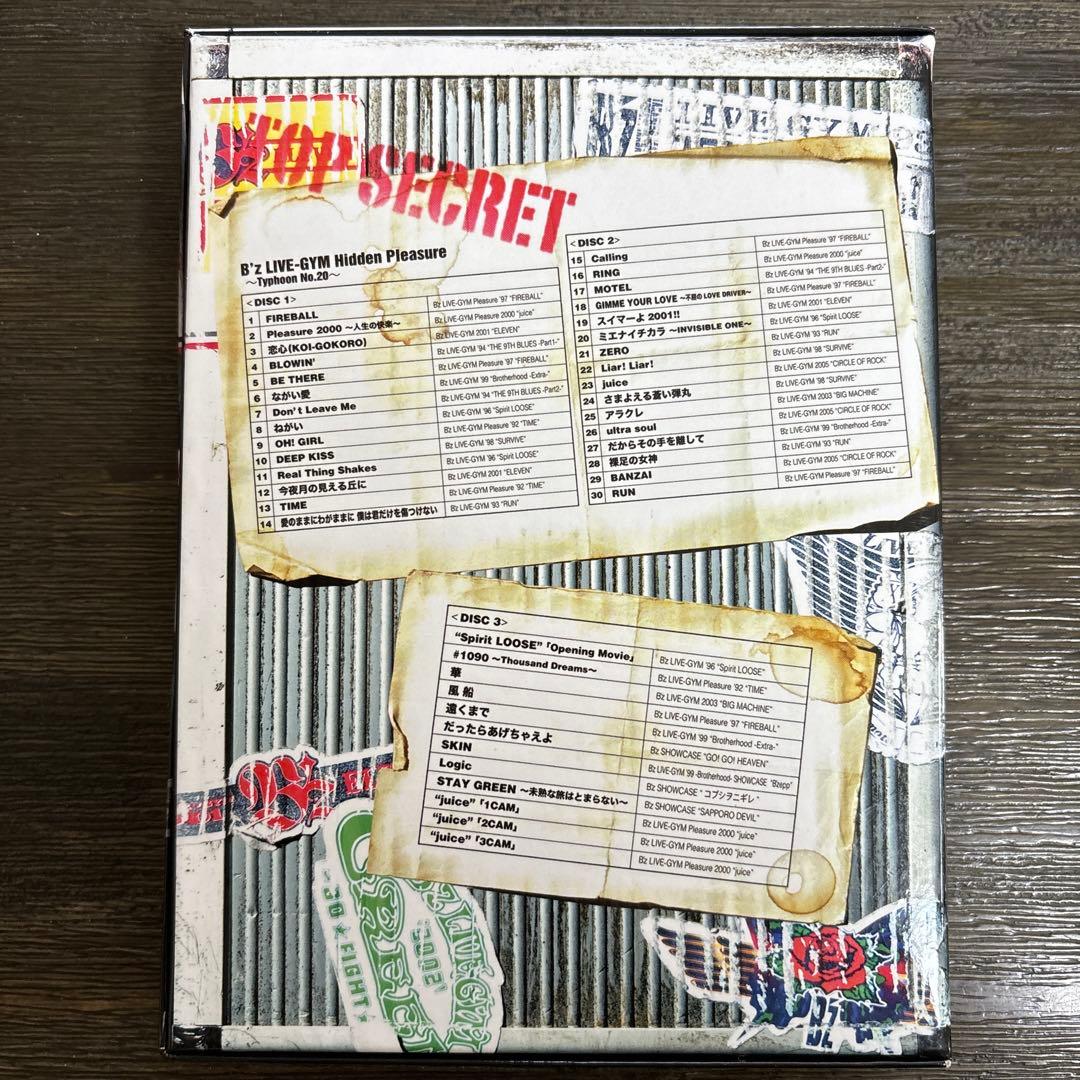 TOP SECRET
LIVE-GYM
B'z LIVE-GYM Hidden Pleasure
～Typhoon No.20～
<DISC 1>
1 FIREBALL B'z LIVE-GYM Pleasure '97 "FIREBALL"
2 Pleasure 2000 ～人生の快楽～ B'z LIVE-GYM Pleasure 2000 "juice"
3 恋心(KOI-GOKORO) B'z LIVE-GYM 2001 "ELEVEN"
4 BLOWIN' B'z LIVE-GYM '94 "THE 9TH BLUES -Part1-"
5 BE THERE B'z LIVE-GYM Pleasure '97 "FIREBALL"
6 ながい愛 B'z LIVE-GYM '99 "Brotherhood -Extra-"
7 Don't Leave Me B'z LIVE-GYM '94 "THE 9TH BLUES -Part2-"
8 ねがい B'z LIVE-GYM '96 "Spirit LOOSE"
9 OH! GIRL B'z LIVE-GYM Pleasure '92 "TIME"
10 DEEP KISS B'z LIVE-GYM '98 "SURVIVE"
11 Real Thing Shakes B'z LIVE-GYM '96 "Spirit LOOSE"
12 今夜月の見える丘に B'z LIVE-GYM 2001 "ELEVEN"
13 TIME B'z LIVE-GYM Pleasure '92 "TIME"
14 愛のままにわがままに 僕は君だけを傷つけない B'z LIVE-GYM '93 "RUN"
<DISC 2>
15 Calling B'z LIVE-GYM Pleasure '97 "FIREBALL"
16 RING B'z LIVE-GYM Pleasure 2000 "juice"
17 MOTEL B'z LIVE-GYM '94 "THE 9TH BLUES -Part2-"
18 GIMME YOUR LOVE ～不屈の LOVE DRIVER～ B'z LIVE-GYM Pleasure '97 "FIREBALL"
19 スイマーよ 2001!! B'z LIVE-GYM 2001 "ELEVEN"
20 ミエナイチカラ ～INVISIBLE ONE～ B'z LIVE-GYM '96 "Spirit LOOSE"
21 ZERO B'z LIVE-GYM '93 "RUN"
22 Liar! Liar! B'z LIVE-GYM '98 "SURVIVE"
23 juice B'z LIVE-GYM 2005 "CIRCLE OF ROCK"
24 さまよえる蒼い弾丸 B'z LIVE-GYM '98 "SURVIVE"
25 アラクレ B'z LIVE-GYM 2003 "BIG MACHINE"
26 ultra soul B'z LIVE-GYM 2005 "CIRCLE OF ROCK"
27 だからその手を離して B'z LIVE-GYM '99 "Brotherhood -Extra-"
28 裸足の女神 B'z LIVE-GYM '93 "RUN"
29 BANZAI B'z LIVE-GYM 2005 "CIRCLE OF ROCK"
30 RUN B'z LIVE-GYM Pleasure '97 "FIREBALL"
<DISC 3>
"Spirit LOOSE"「Opening Movie」 B'z LIVE-GYM '96 "Spirit LOOSE"
#1090 ～Thousand Dreams～ B'z LIVE-GYM Pleasure '92 "TIME"
華 B'z LIVE-GYM 2003 "BIG MACHINE"
風船 B'z LIVE-GYM Pleasure '97 "FIREBALL"
遠くまで B'z LIVE-GYM '99 "Brotherhood -Extra-"
だったらあげちゃえよ B'z SHOWCASE "GO! GO! HEAVEN"
SKIN B'z LIVE-GYM '99 -Brotherhood- SHOWCASE "Bzepp"
Logic B'z SHOWCASE "コブシヲニギレ"
STAY GREEN ～未熟な旅はとまらない～ B'z SHOWCASE "SAPPORO DEVIL"
"juice"「1CAM」 B'z LIVE-GYM Pleasure 2000 "juice"
"juice"「2CAM」 B'z LIVE-GYM Pleasure 2000 "juice"
"juice"「3CAM」 B'z LIVE-GYM Pleasure 2000 "juice"
GREEN
2002
GO★FIGHT